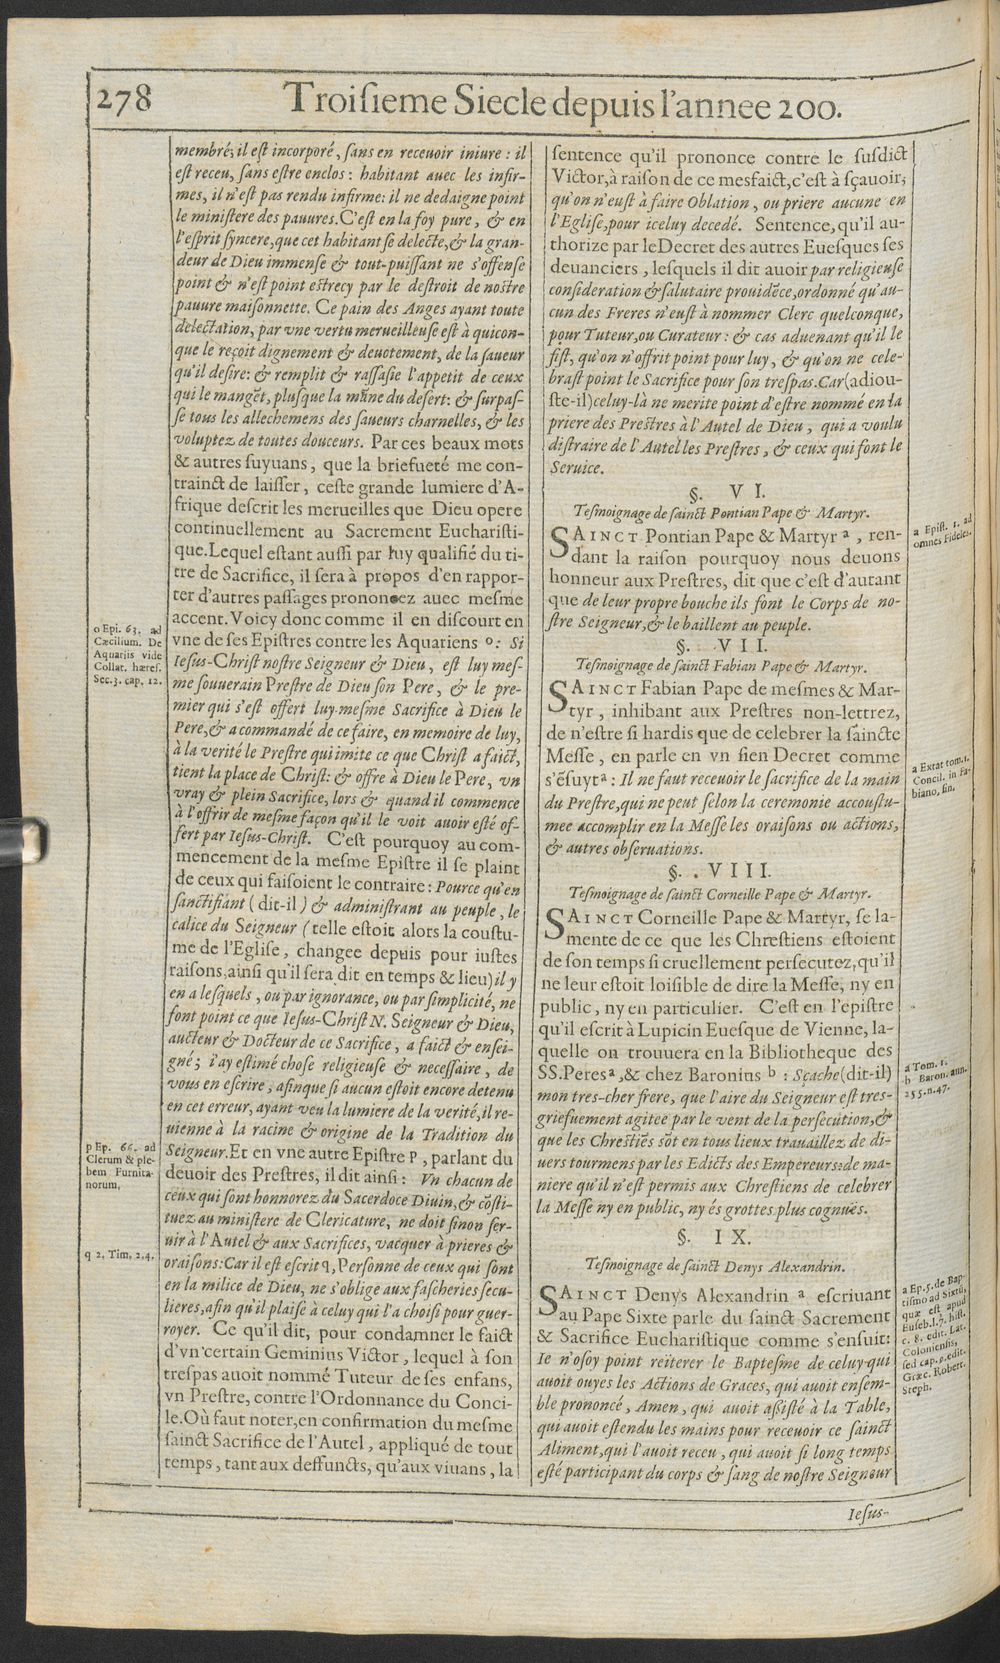 278
Troisieme Siecle depuis l'annee 200.
membré; il est incorporé, sans en receuoir iniure : il
est receu, sans estre enclos : habitant auec les infir-
mes, il n'est pas rendu infirme: il ne dedaigne point
le ministere des pauures. C'est en la foy pure, & en
l'esprit syncere, que cet habitant se delecte, & la gran-
deur de Dieu immense & tout-puissant ne s'offense
point & n'est point estrecy par le destroit de nostre
pauure maisonnette. Ce pain des Anges ayant toute
delectation, par vne vertu merueilleuse est à quicon-
que le reçoit dignement & deuotement, de la saueur
qu'il desire: & remplit & rassasie l'appetit de ceux
qui le mangēt, plusque la māne du desert: & surpas-
se tous les allechemens des saueurs charnelles, & les
voluptez de toutes douceurs. Par ces beaux mots
& autres suyuans, que la briefueté me con-
trainct de laisser, ceste grande lumiere d'A-
frique descrit les merueilles que Dieu opere
continuellement au Sacrement Eucharisti-
que. Lequel estant aussi par luy qualifié du ti-
tre de Sacrifice, il sera à propos d'en rappor-
ter d'autres passages prononcez auec mesme
accent. Voicy donc comme il en discourt en
vne de ses Epistres contre les Aquariens o: Si
Iesus-Christ nostre Seigneur & Dieu, est luy mes-
me souuerain Prestre de Dieu son Pere, & le pre-
mier qui s'est offert luy-mesme Sacrifice à Dieu le
Pere, & a commandé de ce faire, en memoire de luy,
à la verité le Prestre qui imite ce que Christ a faict,
tient la place de Christ: & offre à Dieu le Pere, vn
vray & plein Sacrifice, lors & quand il commence
à l'offrir de mesme façon qu'il le voit auoir esté of-
fert par Iesus-Christ. C'est pourquoy au com-
mencement de la mesme Epistre il se plaint
de ceux qui faisoient le contraire: Pource qu'en
sanctifiant (dit-il) & administrant au peuple, le
calice du Seigneur (telle estoit alors la coustu-
me de l'Eglise, changee depuis pour iustes
raisons, ainsi qu'il sera dit en temps & lieu) il y
en a lesquels, ou par ignorance, ou par simplicité, ne
font point ce que Iesus-Christ N. Seigneur & Dieu,
aucteur & Docteur de ce Sacrifice, a faict & ensei-
gné; i'ay estimé chose religieuse & necessaire, de
vous en escrire, afinque si aucun estoit encore detenu
en cet erreur, ayant veu la lumiere de la verité, il re-
uienne à la racine & origine de la Tradition du
Seigneur. Et en vne autre Epistre p, parlant du
deuoir des Prestres, il dit ainsi : Vn chacun de
ceux qui sont honnorez du Sacerdoce Diuin, & cōsti-
tuez au ministere de Clericature, ne doit sinon ser-
uir à l'Autel & aux Sacrifices, vacquer à prieres &
oraisons: Car il est escrit q, Personne de ceux qui sont
en la milice de Dieu, ne s'oblige aux fascheries secu-
lieres, afin qu'il plaise à celuy qui l'a choisi pour guer-
royer. Ce qu'il dit, pour condamner le faict
d'vn certain Geminius Victor, lequel à son
trespas auoit nommé Tuteur de ses enfans,
vn Prestre, contre l'Ordonnance du Conci-
le. Où faut noter, en confirmation du mesme
sainct Sacrifice de l'Autel, appliqué de tout
temps, tant aux deffuncts, qu'aux viuans, la
o Epi. 63. ad
Cæcilium. De
Aquariis vide
Collat. hæres.
Sec. 3. cap. 12.
p Ep. 66. ad
Clerum & ple-
bem Furnita-
norum.
q 2. Tim. 2.4.
sentence qu'il prononce contre le susdict
Victor, à raison de ce mesfaict, c'est à sçauoir;
qu'on n'eust à faire Oblation, ou priere aucune en
l'Eglise, pour iceluy decedé. Sentence, qu'il au-
thorize par le Decret des autres Euesques ses
deuanciers, lesquels il dit auoir par religieuse
consideration & salutaire prouidēce, ordonné qu'au-
cun des Freres n'eust à nommer Clerc quelconque,
pour Tuteur, ou Curateur : & cas aduenant qu'il le
fist, qu'on n'offrit point pour luy, & qu'on ne cele-
brast point le Sacrifice pour son trespas. Car (adiou-
ste-il) celuy-là ne merite point d'estre nommé en la
priere des Prestres à l'Autel de Dieu, qui a voulu
distraire de l'Autel les Prestres, & ceux qui font le
Seruice.
§. VI.
Tesmoignage de sainct Pontian Pape & Martyr.
SAINCT Pontian Pape & Martyr a, ren-
dant la raison pourquoy nous deuons
honneur aux Prestres, dit que c'est d'autant
que de leur propre bouche ils font le Corps de no-
stre Seigneur, & le baillent au peuple.
§. VII.
Tesmoignage de sainct Fabian Pape & Martyr.
SAINCT Fabian Pape de mesmes & Mar-
tyr, inhibant aux Prestres non-lettrez,
de n'estre si hardis que de celebrer la saincte
Messe, en parle en vn sien Decret comme
s'ēsuyt a: Il ne faut receuoir le sacrifice de la main
du Prestre, qui ne peut selon la ceremonie accoustu-
mee accomplir en la Messe les oraisons ou actions,
& autres obseruations.
§. VIII.
Tesmoignage de sainct Corneille Pape & Martyr.
SAINCT Corneille Pape & Martyr, se la-
mente de ce que les Chrestiens estoient
de son temps si cruellement persecutez, qu'il
ne leur estoit loisible de dire la Messe, ny en
public, ny en particulier. C'est en l'epistre
qu'il escrit à Lupicin Euesque de Vienne, la-
quelle on trouuera en la Bibliotheque des
SS. Peres a, & chez Baronius b : Sçache (dit-il)
mon tres-cher frere, que l'aire du Seigneur est tres-
griefuement agitee par le vent de la persecution, &
que les Chrestiēs sōt en tous lieux trauaillez de di-
uers tourmens par les Edicts des Empereurs: de ma-
niere qu'il n'est permis aux Chrestiens de celebrer
la Messe ny en public, ny és grottes plus cognuës.
§. IX.
Tesmoignage de sainct Denys Alexandrin.
SAINCT Denys Alexandrin a escriuant
au Pape Sixte parle du sainct Sacrement
& Sacrifice Eucharistique comme s'ensuit:
Ie n'osoy point reiterer le Baptesme de celuy qui
auoit ouyes les Actions de Graces, qui auoit ensem-
ble prononcé, Amen, qui auoit assisté à la Table,
qui auoit estendu les mains pour receuoir ce sainct
Aliment, qui l'auoit receu, qui auoit si long temps
esté participant du corps & sang de nostre Seigneur
Iesus-
a Epist. 1. ad
omnes Fideles.
a Extat tom. 1.
Concil. in Fa-
biano, fin.
a Tom. 1.
b Baron. ann.
255. n. 47.
a Ep. 5. de Bap-
tismo ad Sixtū,
quæ est apud
Euseb. l. 7. hist.
c. 8. edit. Lat.
Coloniensis,
sed cap. 9. edit.
Græc. Robert.
Steph.